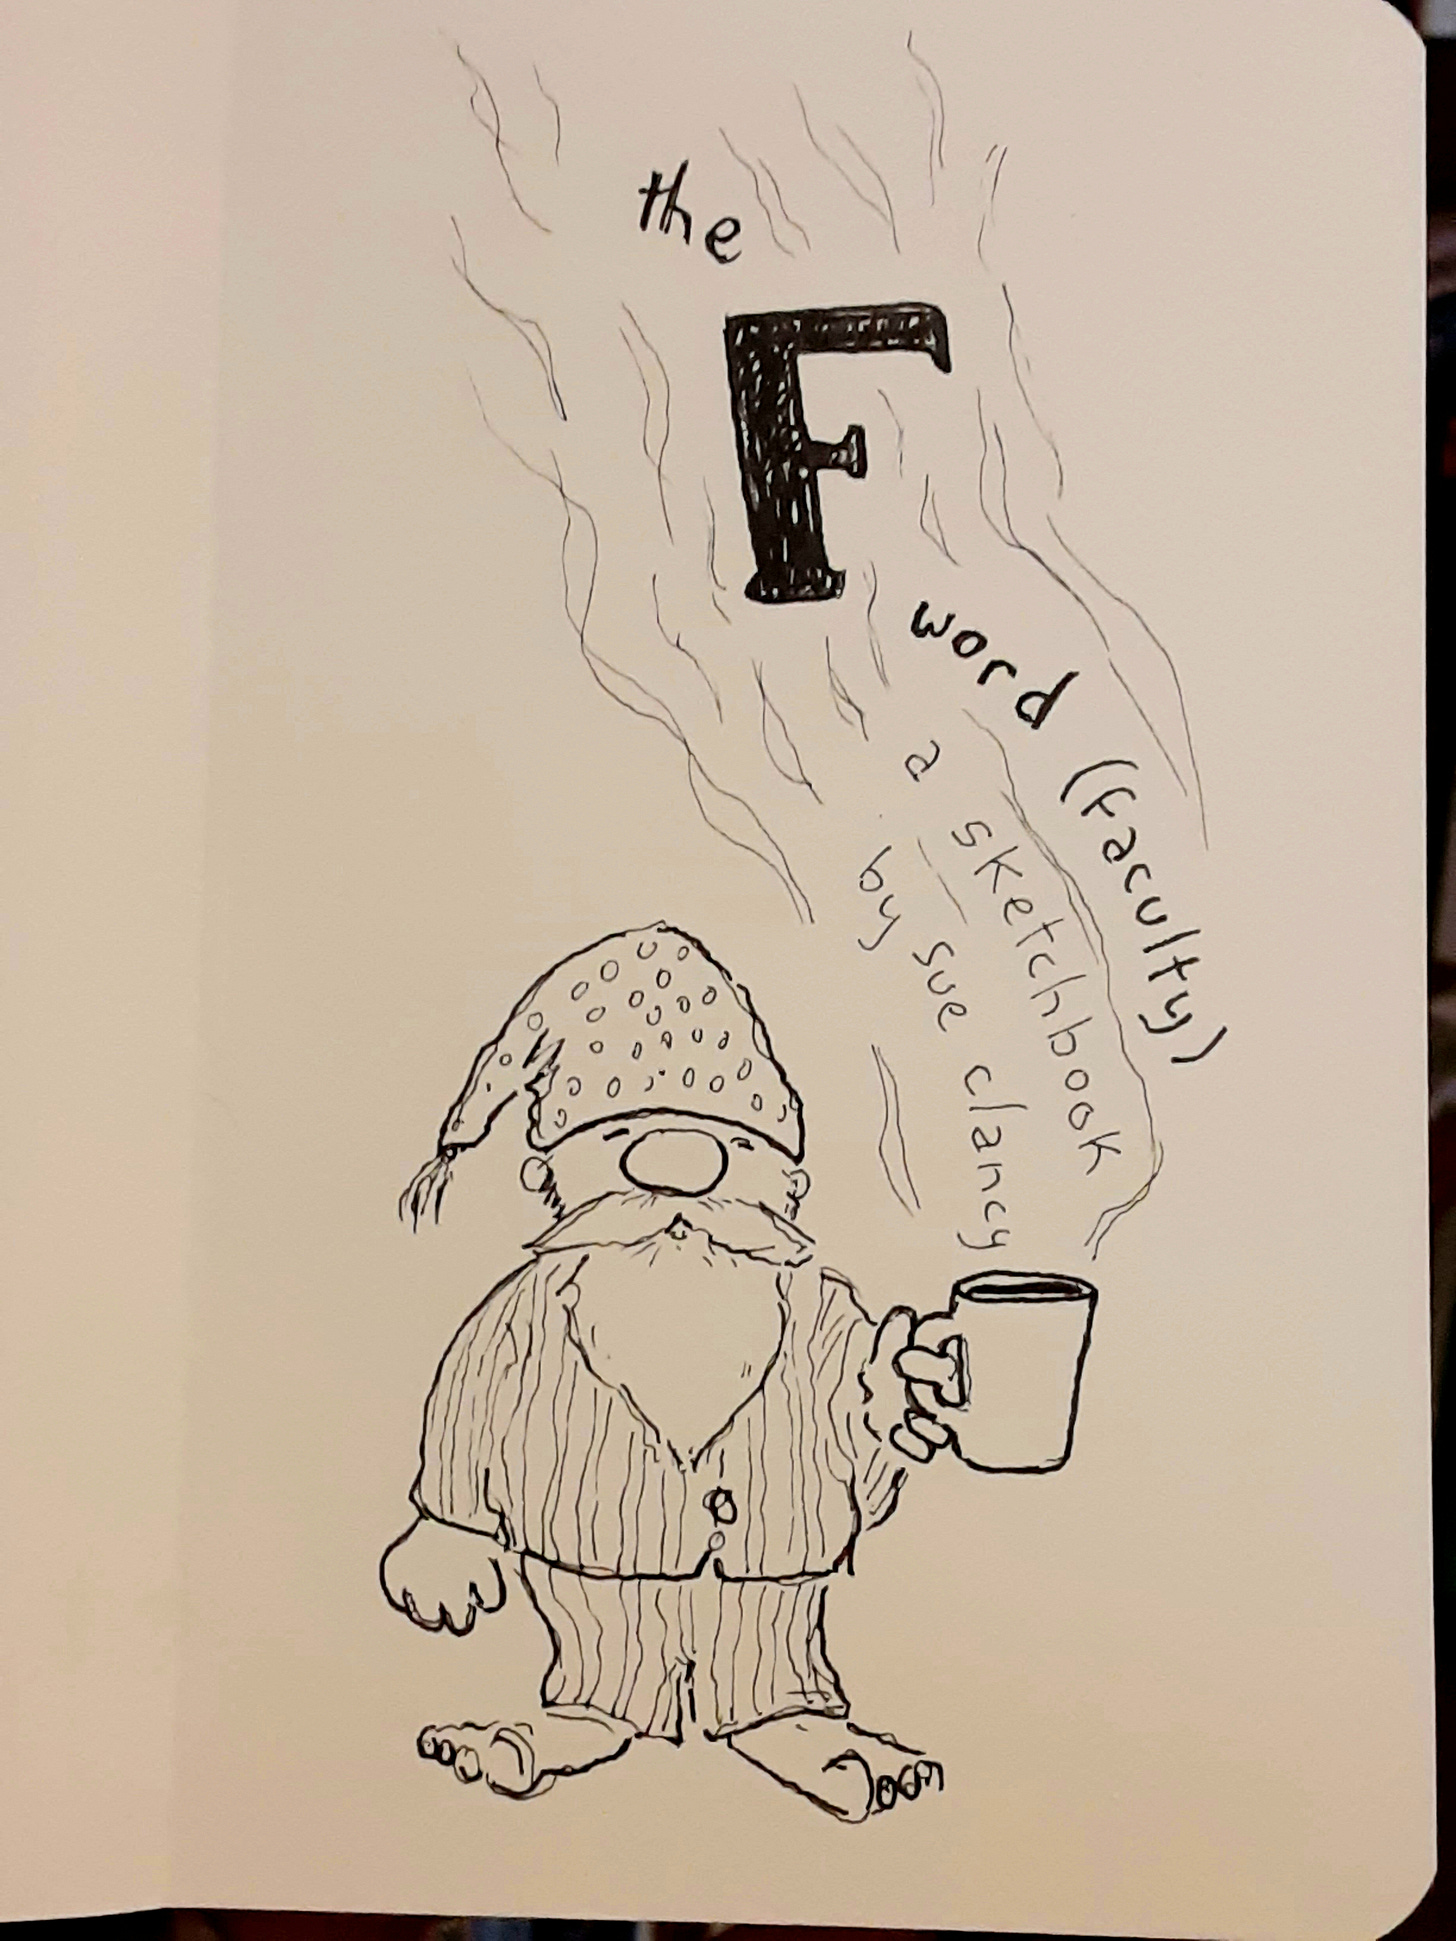 the
F
word (faculty)
a sketchbook
by sue clancy